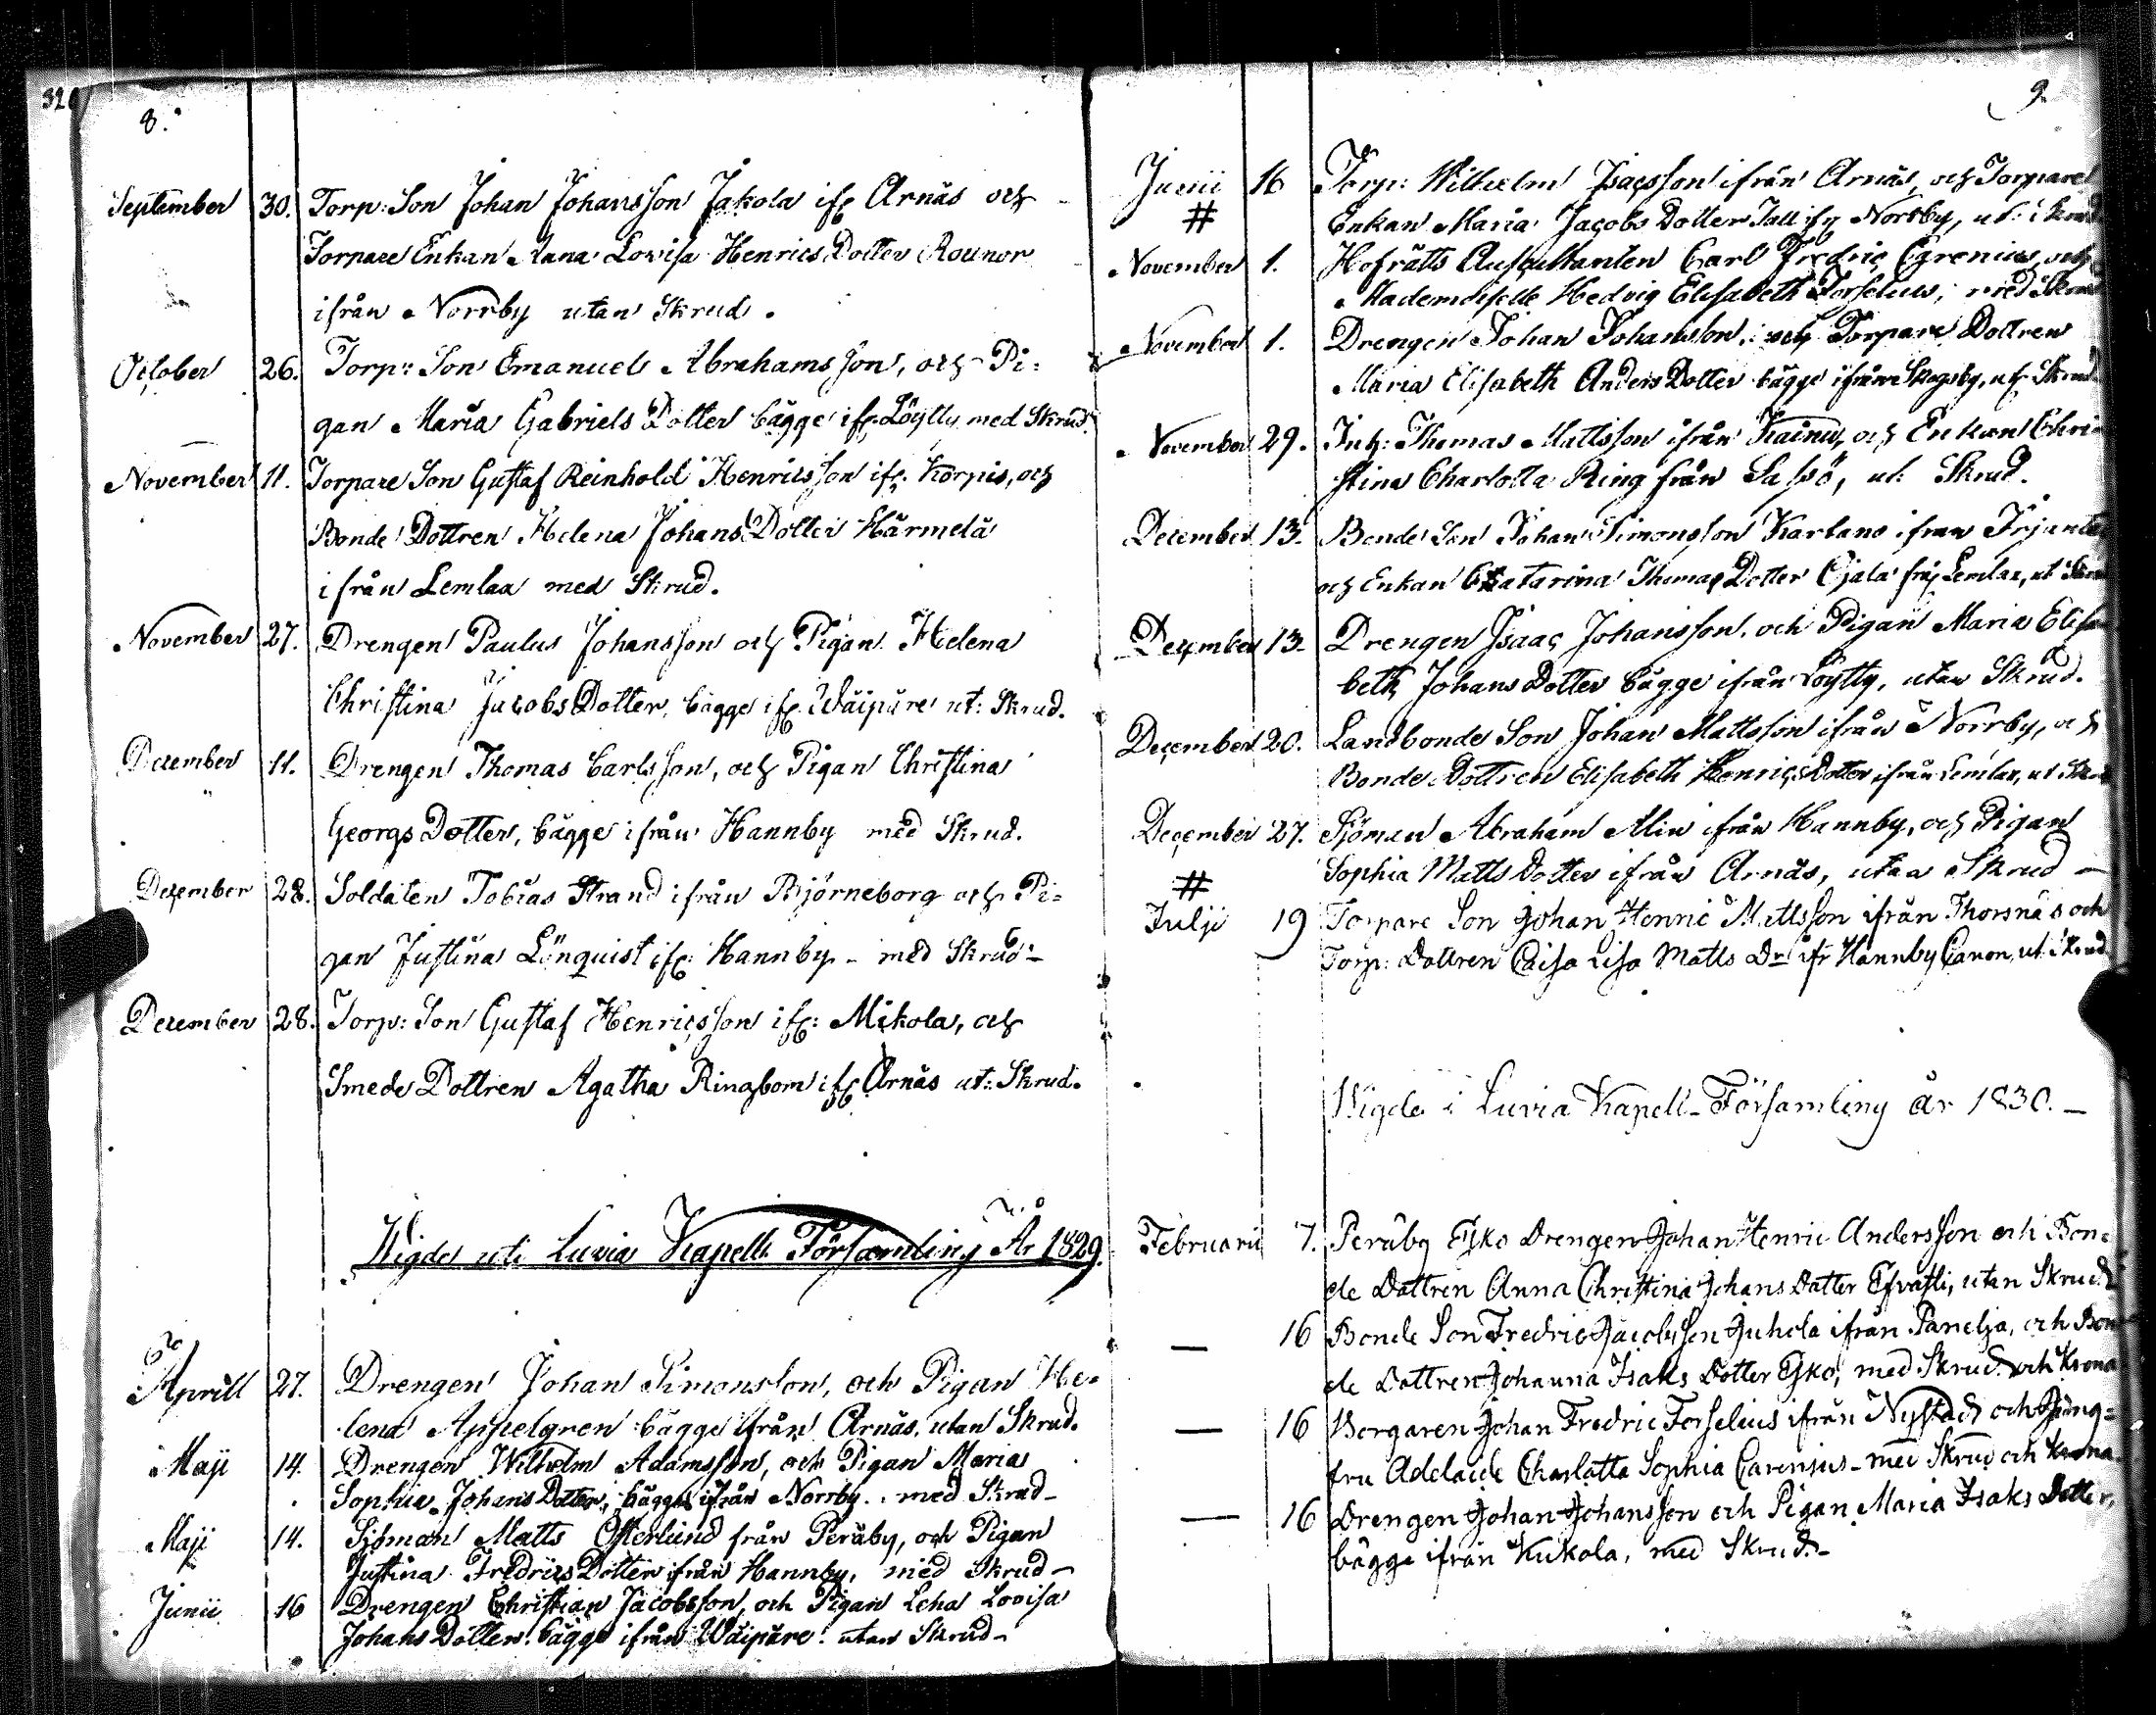 8.
September 30. Torp: Son Johan Johansson Jakola ifr Arnäs och
Torpare Enkan Anna Lovisa Henrics Dotter Rounor
ifrån Norrby utan Skrud.
October 26. Torp: Son Emanuel Abrahamsson, och Pi-
gan Maria Gabriels Dotter bägge ifr. Löytty med Skrud.
November 11. Torpare Son Gustaf Reinhold Henricsson ifr. Korpis, och
Bonde Dottren Helena Johans Dotter Härmelä
ifrån Lemlax med Skrud.
November 27. Drengen Paulus Johansson och Pigan Helena
Christina Jacobs Dotter, bägge ifr. Wäipäre ut: Skrud.
December 11. Drengen Thomas Carlsson, och Pigan Christina
Georgs Dotter, bägge ifrån Hannby med Skrud.
December 28. Soldaten Tobias Strand ifrån Björneborg och Pi-
gan Justina Lönquist ifr: Hannby - med Skrud -
December 28. Torp: Son Gustaf Henricsson ifr: Mikola, och
Smeds Dottren Agatha Ringbom ifr Arnäs ut: Skrud.
Wigde uti Luvia Kapells Församling År 1829.
Aprill 27. Drengen Johan Simonsson, och Pigan He-
lena Appelgren bägge ifrån Arnäs, utan Skrud.
Maji 14. Drengen Wilhelm Adamsson, och Pigan Maria
Sophia Johans Dotter, bägge ifrån Norrby. med Skrud -
Maji 14. Sjöman Matts Österlund från Peräby, och Pigan
Justina Fredrics Dotter ifrån Hannby, med Skrud -
Junii 16 Drengen Christian Jacobsson, och Pigan Lena Lovisa
Johans Dotter bägge ifrån Wäipäre utan Skrud -
9.
Junii 16 Torp: Wilhelm Isacsson ifrån Arnäs, och Torpare
# Enkan Maria Jacobs Dotter Tall ifr Norrby, ut: Skrud
November 1. Hofrätts Auscultanten Carl Fredric Grenius, och
Mademoiselle Hedvig Elisabeth Forselius, med Skrud
November 1. Drengen Johan Johansson, och Torpare Dottren
Maria Elisabeth Anders Dotter bägge ifrån Skogsby, ut Skrud
November 29. Inh: Thomas Mattsson ifrån Kainu, och Enkan Chri-
stina Charlotta Ring från Sassö, ut: Skrud.
December 13. Bonde Son Johan Simonsson Karlano ifrån Irjante
och Enkan Catarina Thomas Dotter Ojala frå Lemlax, ut Skrud
December 13. Drengen Isaac Johansson, och Pigan Maria Elisa
beth Johans Dotter bägge ifrån Löytty, utan Skrud.
December 20. Landbonde Son Johan Mattsson ifrån Norrby, och
Bonde Dottren Elisabeth Henrics Dotter ifrån Lemlax, ut Skrud
December 27. Sjöman Abraham Alin ifrån Hannby, och Pigan
# Sophia Matts Dotter ifrån Arnäs, utan Skrud -
Julji 19 Torpare Son Johan Henric Mattsson ifrån Thorsnäs och
Torp: Dottren Caisa Lisa Matts Dr ifr Hannby Canon, ut: Skrud
Wigde i Luvia Kapell-Församling år 1830. -
Februarii 7. Peräby Esko Drengen Johan Henric Andersson och Bon-
de Dottren Anna Christina Johans Dotter Efrasti, utan Skrud
— 16 Bonde Son Fredric Jacobsson Juhola ifrån Panelja, och Bon-
de Dottren Johanna Isaks Dotter Esko, med Skrud och Krona
— 16 Borgaren Johan Fredric Forselius ifrån Nystad och Jung-
fru Adelaide Charlotta Sophia Carenius - med Skrud och Krona
— 16 Drengen Johan Johansson och Pigan Maria Isaks Dotter,
bägge ifrån Kukola, med Skrud -